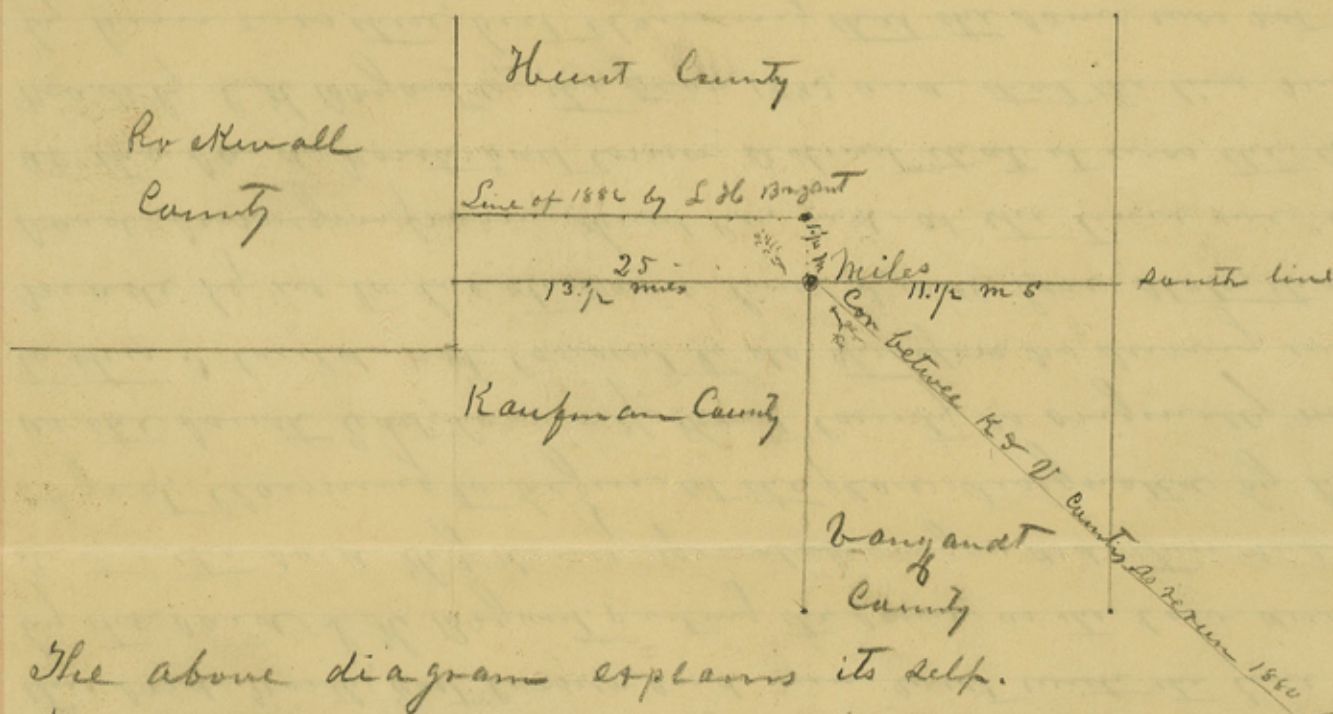 Hunt County
Rockwall
County
Line of 1886 by L H Bryant
25 Miles
13 1/2 miles
11 1/2 m s
south line
Cor between K & V Counties as rerun 1880
Kaufman County
Vanzandt
County
The above diagram explains its self.